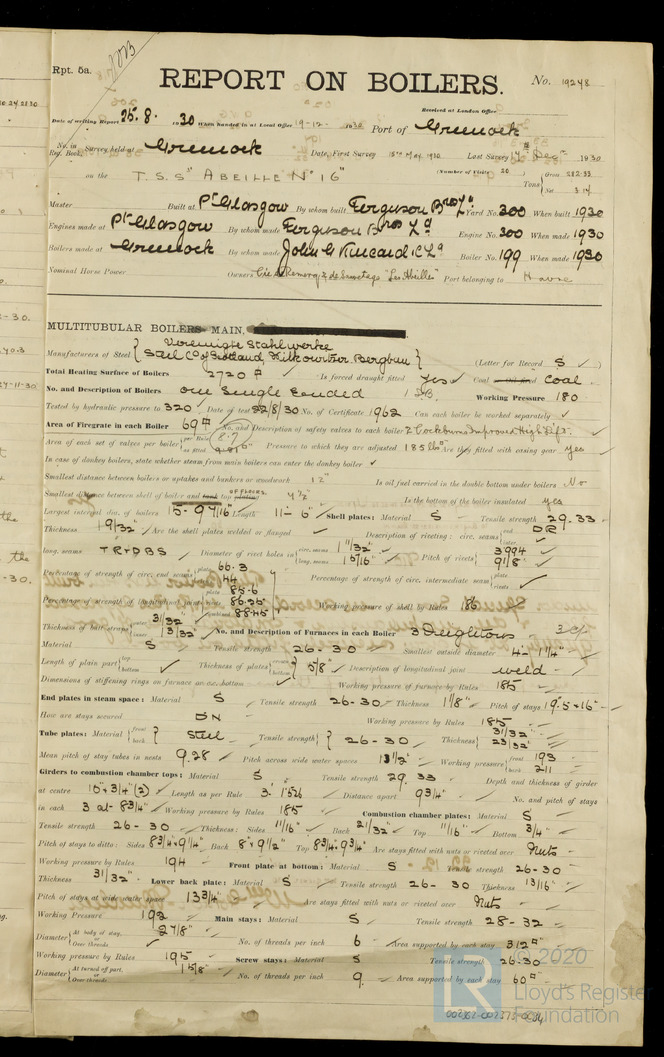 Rpt. 5a.
REPORT ON BOILERS.
No. 19248
Received at London Office
Date of writing Report 25.8. 1930 When handed in at Local Office 19-12-1930 Port of Greenock
No. in Reg. Book. Survey held at Greenock Date, First Survey 15th May 1930 Last Survey Dec 1930
on the T.S.S "ABEILLE No 16" (Number of Visits 20) Tons Gross 282.33 Net 3.14
Master Built at Pt Glasgow By whom built Ferguson Bros Ld Yard No. 300 When built 1930
Engines made at Pt Glasgow By whom made Ferguson Bros Ld Engine No. 300 When made 1930
Boilers made at Greenock By whom made John G Kincaid & Co Ld Boiler No. 199 When made 1930
Nominal Horse Power Owners Cie de Remorq. & de Sauvetage "Les Abeilles" Port belonging to Havre
MULTITUBULAR BOILERS MAIN,
Manufacturers of Steel { Vereinigte Stahlwerke
Steel Co of Scotland, Witkowitzer Bergbau } (Letter for Record S )
Total Heating Surface of Boilers 2720 Is forced draught fitted yes Coal or Oil fired Coal
No. and Description of Boilers one Single Ended 1 SB. Working Pressure 180
Tested by hydraulic pressure to 320 Date of test 22/8/30 No. of Certificate 1962 Can each boiler be worked separately ✓
Area of Firegrate in each Boiler 69 No. and Description of safety valves to each boiler 2 Cockburns Improved High Lift
Area of each set of valves per boiler { per Rule 8.7 as fitted 9.81 Pressure to which they are adjusted 185 lbs Are they fitted with easing gear yes
In case of donkey boilers, state whether steam from main boilers can enter the donkey boiler ✓
Smallest distance between boilers or uptakes and bunkers or woodwork 12" Is oil fuel carried in the double bottom under boilers No
Smallest distance between shell of boiler and tank top plating OF FLOORS 4 1/2" Is the bottom of the boiler insulated yes
Largest internal dia. of boilers 15 - 9 7/16" Length 11 - 6" Shell plates: Material S Tensile strength 29.33
Thickness 19/32" Are the shell plates welded or flanged ✓ Description of riveting: circ. seams { end DR
long. seams TR & DBS Diameter of rivet holes in { circ. seams 1 1/32" long. seams 15/16" Pitch of rivets { 3.994 9 1/8"
Percentage of strength of circ. end seams { plate 66.3 rivets 44 Percentage of strength of circ. intermediate seam { plate rivets ✓
Percentage of strength of longitudinal joint { plate 85.6 rivets 86.25 combined 88.45 Working pressure of shell by Rules 186
Thickness of butt straps { 3/32" 13/32" No. and Description of Furnaces in each Boiler 3 Deightons
Material S Tensile strength 26-30 Smallest outside diameter 4 - 1 1/4"
Length of plain part { top bottom ✓ Thickness of plates { 5/8" Description of longitudinal joint weld
Dimensions of stiffening rings on furnace or c.c. bottom ✓ Working pressure of furnace by Rules 185
End plates in steam space: Material S Tensile strength 26-30 Thickness 1 1/8" Pitch of stays 19.5 x 16"
How are stays secured DN Working pressure by Rules 185
Tube plates: Material { front back Steel Tensile strength { 26-30 Thickness { 31/32" 23/32"
Mean pitch of stay tubes in nests 9.28 Pitch across wide water spaces 13 1/2" Working pressure { front 193 back 211
Girders to combustion chamber tops: Material S Tensile strength 29.33 Depth and thickness of girder
at centre 10" x 3/4" (2) Length as per Rule Distance apart 9 3/4" No. and pitch of stays
in each 3 at 8 3/4" Working pressure by Rules 185 Combustion chamber plates: Material S
Tensile strength 26-30 Thickness: Sides 11/16" Back 21/32" Top 11/16" Bottom 3/4"
Pitch of stays to ditto: Sides 8 3/4" x 9 1/4" Back 8" x 9 1/2" Top 8 3/4" x 9 3/4" Are stays fitted with nuts or riveted over Nuts
Working pressure by Rules 194 Front plate at bottom: Material S Tensile strength 26-30
Thickness 31/32" Lower back plate: Material S Tensile strength 26-30 Thickness 13/16"
Pitch of stays at wide water space 13 3/4" Are stays fitted with nuts or riveted over Nuts
Working Pressure 192 Main stays: Material S Tensile strength 28-32
Diameter { At body of stay, or Over threads 2 7/8" No. of threads per inch 6 Area supported by each stay 312
Working pressure by Rules 195 Screw stays: Material S Tensile strength 26-30
Diameter { At turned off part, or Over threads 1 5/8" No. of threads per inch 9 Area supported by each stay 60
2020
LR
Lloyd's Register
Foundation
002362-002373-0034